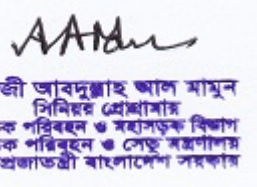 AAMam
জী আবদুল্লাহ আল মামুন
সিনিয়র প্রোগ্রামার
ক পরিবহন ও মহাসড়ক বিভাগ
ক পরিবহন ও সেতু মন্ত্রণালয়
প্রজাতন্ত্রী বাংলাদেশ সরকার